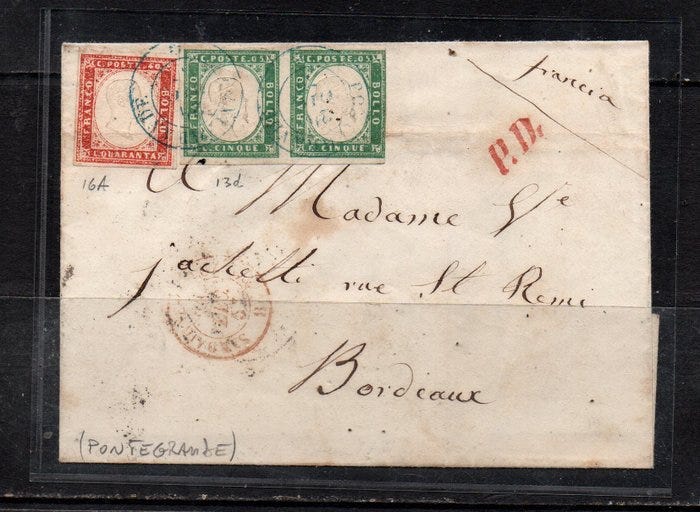 C. POSTE 40
FRANCO
BOLLO
C. QUARANTA
C. POSTE 05
FRANCO
BOLLO
C. CINQUE
C. POSTE 05
FRANCO
BOLLO
C. CINQUE
Francia
P.D.
16A
13d
A Madame Ve
Jackelli rue St Remi
Bordeaux
(PONTEGRANDE)